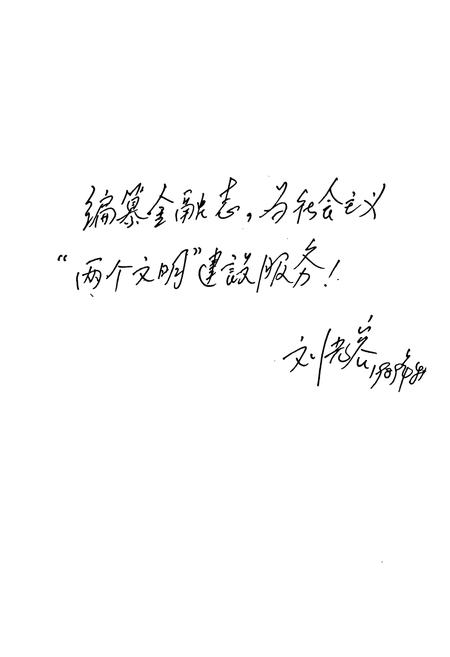 编纂金融志，为社会主义
“两个文明”建設服务！
刘光容 1989年8月